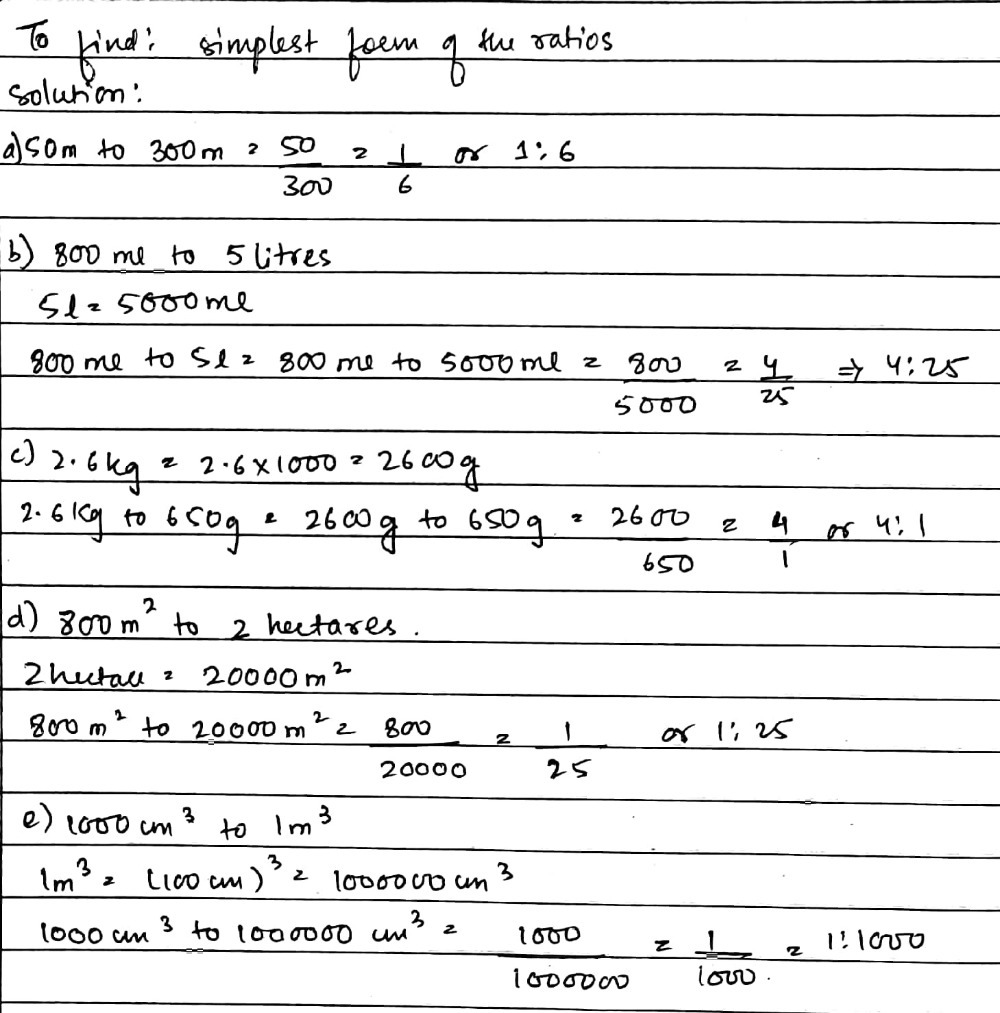 To find: simplest form of the ratios
solution:
a) 50m to 300m = 50/300 = 1/6 or 1:6
b) 800 ml to 5 litres
5l = 5000ml
800 ml to 5l = 800 ml to 5000ml = 800/5000 = 4/25 ⇒ 4:25
c) 2.6kg = 2.6×1000 = 2600g
2.6kg to 650g = 2600g to 650g = 2600/650 = 4/1 or 4:1
d) 800m² to 2 hectares.
2 hectare = 20000m²
800m² to 20000m² = 800/20000 = 1/25 or 1:25
e) 1000 cm³ to 1m³
1m³ = (100 cm)³ = 1000000 cm³
1000 cm³ to 1000000 cm³ = 1000/1000000 = 1/1000 = 1:1000